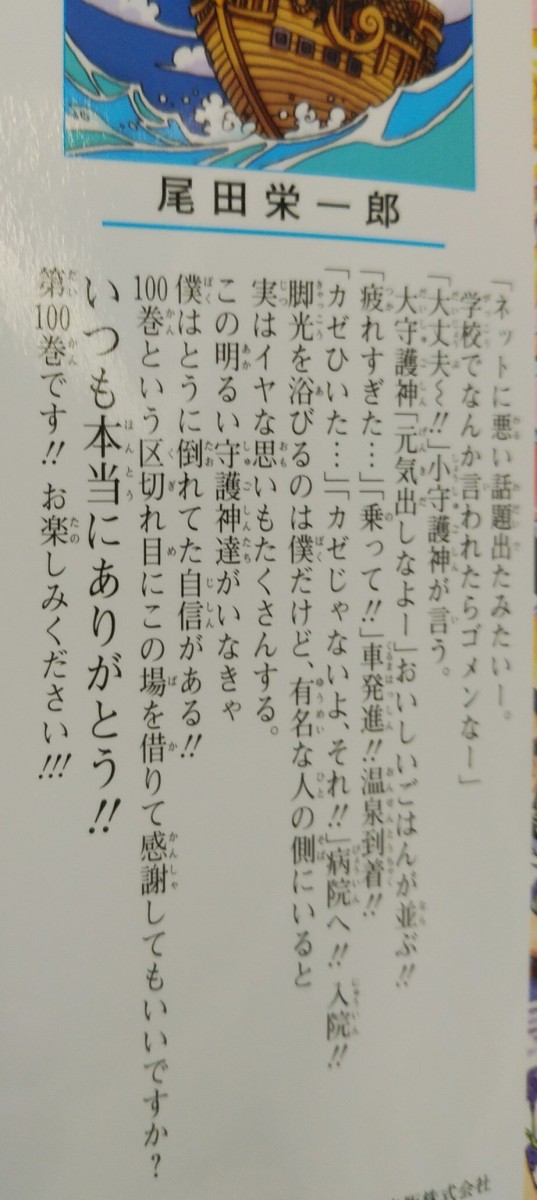 尾田栄一郎
「ネットに悪い話題出たみたいー。
学校でなんか言われたらゴメンなー」
「大丈夫〜!!」小守護神が言う。
大守護神「元気出しなよー」おいしいごはんが並ぶ!!
「疲れすぎた…」「乗って!!」車発進!!温泉到着!!
「カゼひいた…」「カゼじゃないよ、それ!!」病院へ!!入院!!
脚光を浴びるのは僕だけど、有名な人の側にいると
実はイヤな思いもたくさんする。
この明るい守護神達がいなきゃ
僕はとうに倒れてた自信がある!!
100巻という区切れ目にこの場を借りて感謝してもいいですか?
いつも本当にありがとう!!
第100巻です!!お楽しみください!!!
株式会社